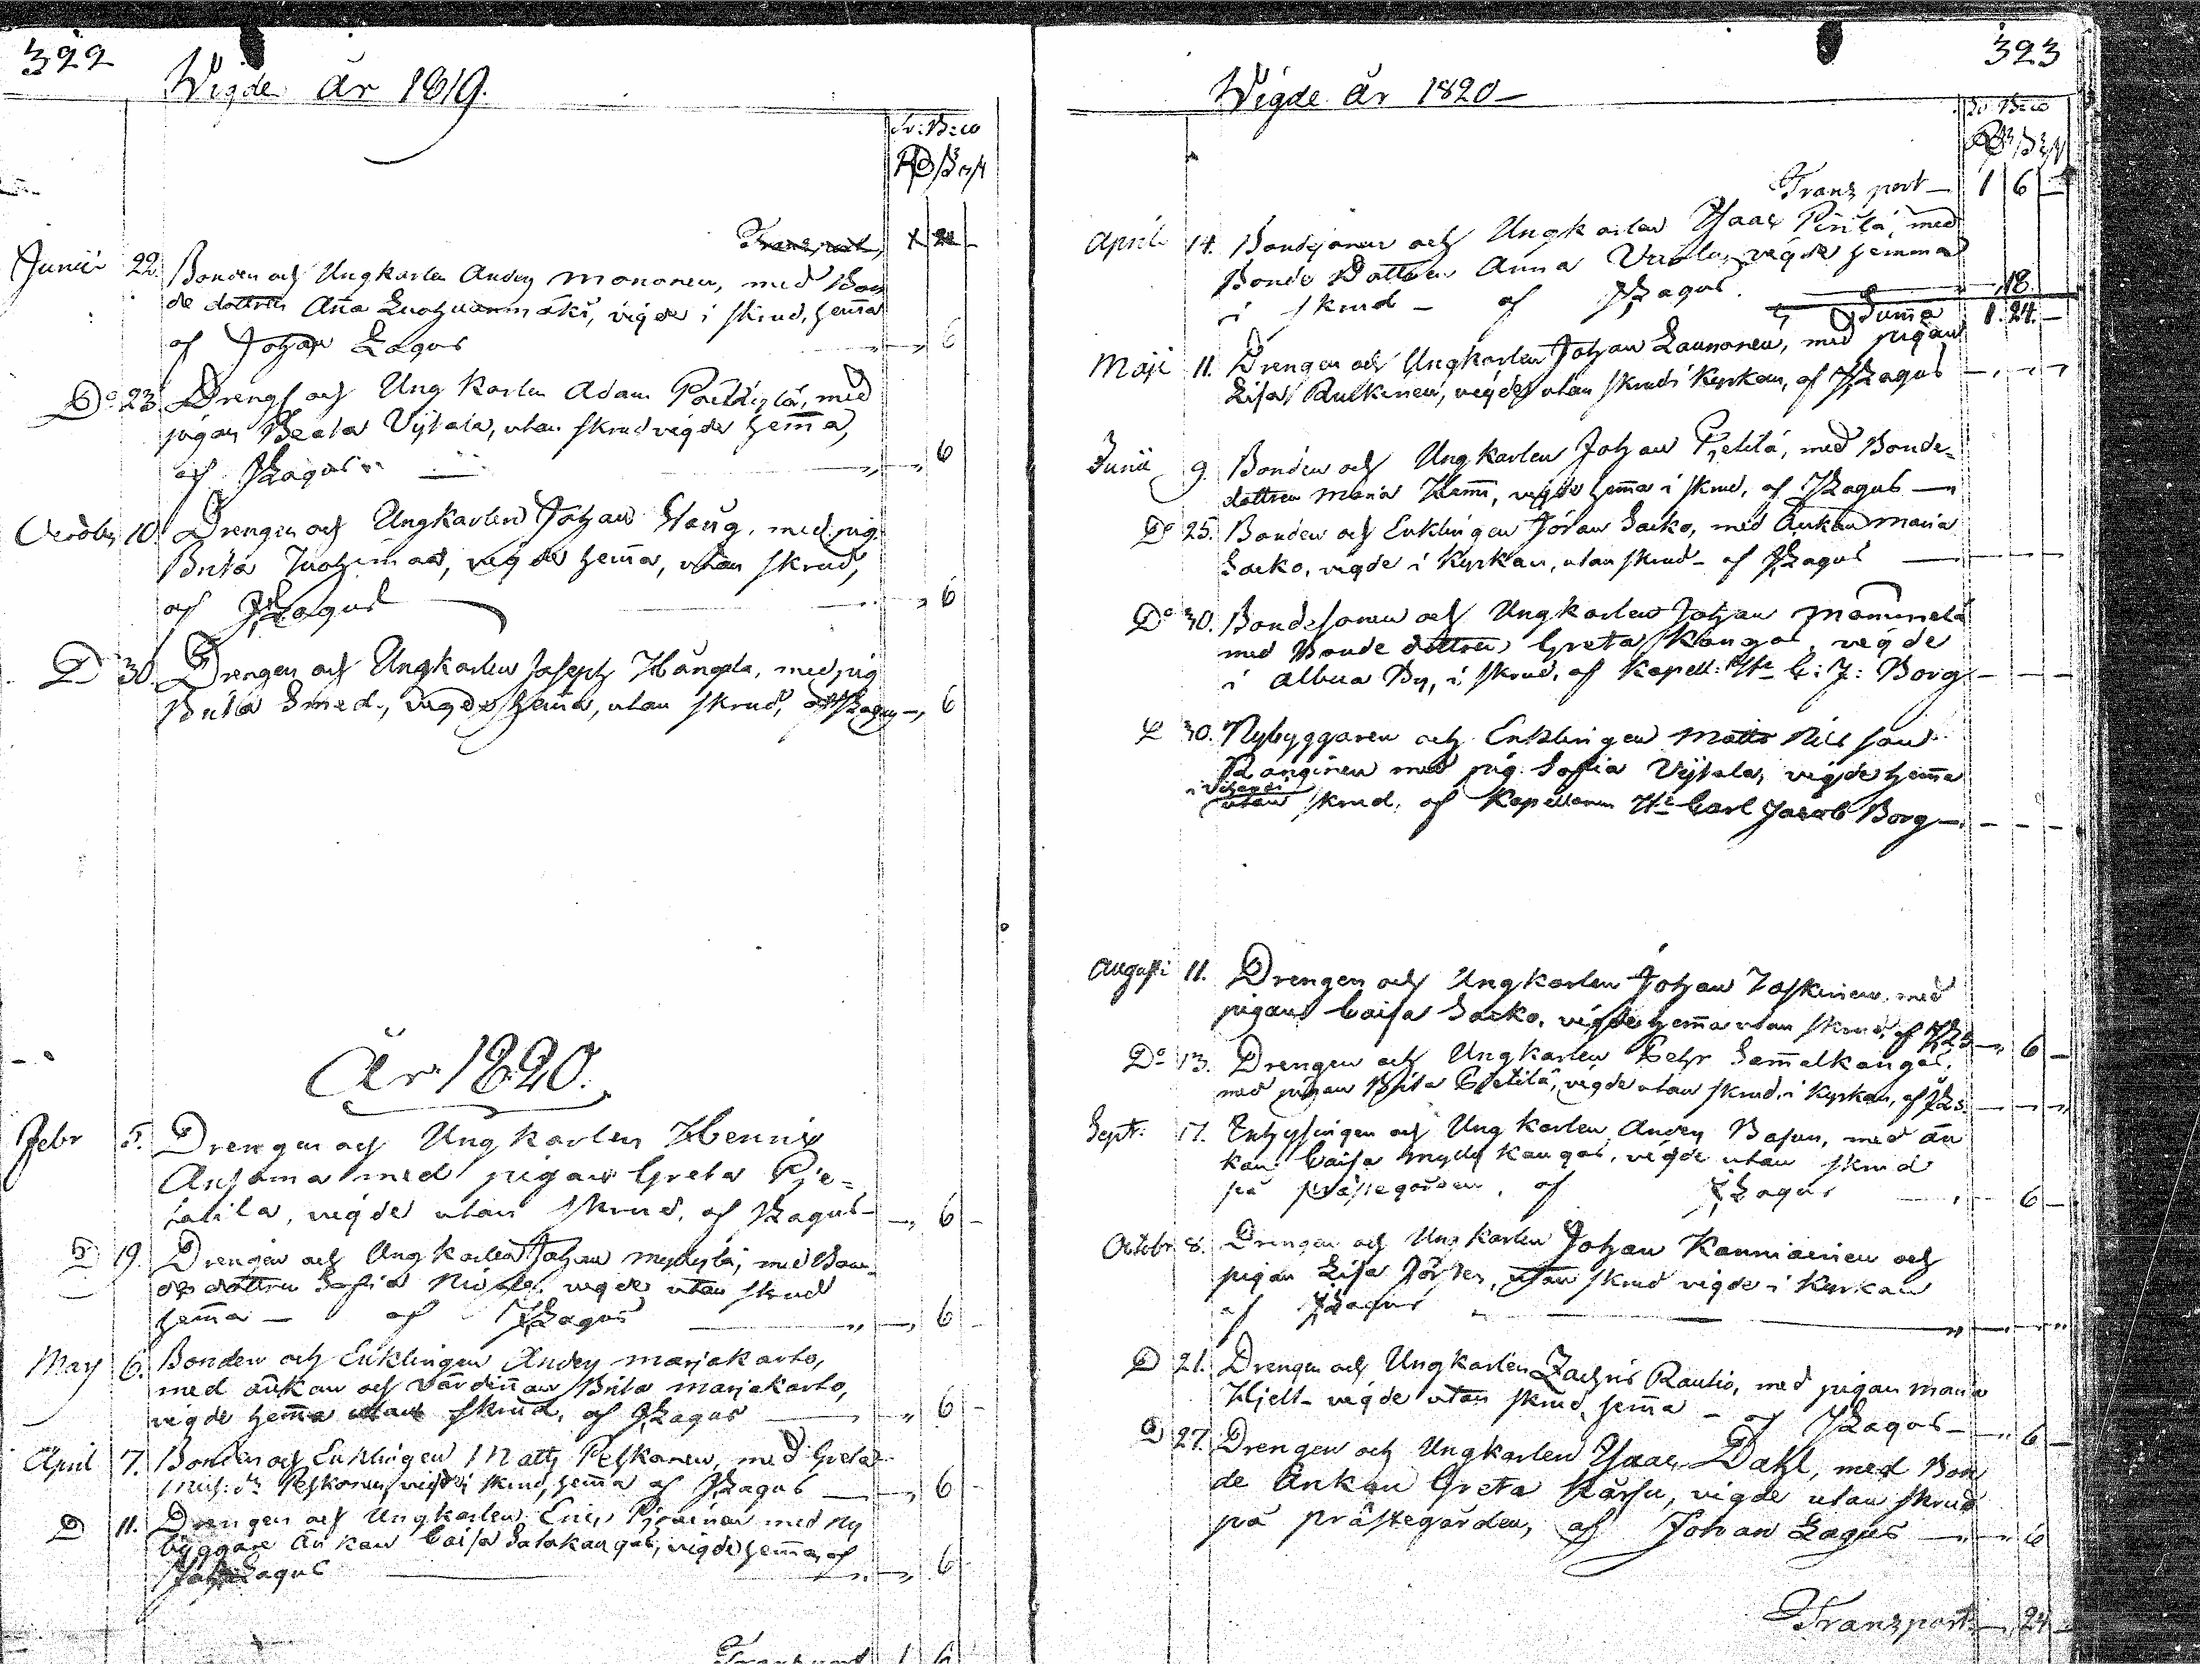 322
Wigde år 1819.
Sv: B:co
Transport,
Junii 22. Bonden och Ungkarlen Anders Mononen, med Bon
de dottren Aña Luohuanmäki, vigde i skrud, hem̃a
af Johan Lagus 6
Do 23. Dreng och Ungkarlen Adam med
pigan Beata Vÿtala, utan skrud vigde hem̃a,
af JLagus 6
October 10. Drengen och Ungkarlen Johan Haug, med pig.
Brita vigde hem̃a, utan skrud,
af JLagus 6
D 30. Drengen och Ungkarlen Joseph Hångala, med pig
Brita Smed, vigde hem̃a, utan skrud, af JLagus 6
År 1820.
Febr 5. Drengen och Ungkarlen Henric
Ansama med pigan Greta Pie=
tarila, vigde utan skrud, af JLagus 6
D 19. Drengen och Ungkarlen Johan Myllylä, med Bon
de dottren Sofia vigde utan skrud
hem̃a af JLagus 6
May 6. Bonden och Enklingen Anders Marjakarho,
med änkan och värdiñan Brita Marjakarho,
vigde hem̃a utan skrud, af JLagus 6
April 7. Bonden och Enklingen Matts Peskonen, med Greta
Mich: dr Peskonen, vigde i skrud, hem̃a af JLagus 6
D 11. Drengen och Ungkarlen Eric med Ny
byggare Änkan Caisa Salokangas, vigde hem̃a, af
Joh: Lagus 6
Transport 1 6
323
Wigde år 1820
Sv: B:co
Transport 1 6
April 14. Bondesonen och Ungkarlen Isaac Pirilä, med
Bonde Dottren Anna vigde hemma
i skrud af JLagus 18.
Sum̃a 1. 24.
Maji 11. Drengen och Ungkarlen Johan Launonen, med pigan
Lisa Pulkinen, vigde utan skrud i Kyrkan, af JLagus
Junii 9. Bonden och Ungkarlen Johan Pietilä, med Bonde=
dottren Maria Hem̃i, vigde hem̃a i skrud, af JLagus
Do 25. Bonden och Enklingen Jöran Sarko, med Änkan Maria
Sarko, vigde i Kyrkan, utan skrud af JLagus
Do 30. Bondesonen och Ungkarlen Johan Mammela
med Bonde dottren Greta Kangas, vigde
i Albua By, i skrud, af Kapell: Hr C: J: Borg
D 30. Nybyggaren och Enklingen Matts Nilsson
Ranginen med pig. Sofia Vÿtala, vigde hem̃a
utan skrud, af Kapellanen Hr Carl Jacob Borg
Augusti 11. Drengen och Ungkarlen Johan Laskinen, med
pigan Caisa Sarko, vigde hem̃a utan skrud, af JLs 6
Do 13. Drengen och Ungkarlen Pehr Sam̃alkangas,
med pigan Brita Pietilä, vigde utan skrud, i Kyrkan, af JLs.
Sept: 17. Inhysingen och Ungkarlen Anders Basun, med än
kan Caisa Myllykangas, vigde utan skrud
på prästegården, af JLagus 6
Octobr 8. Drengen och Ungkarlen Johan Kanniainen och
pigan Lisa utan skrud vigde i Kyrkan
af JLagus
D 21. Drengen och Ungkarlen Zachris Rautio, med pigan Maria
Hjelt vigde utan skrud hem̃a af JLagus 6
D 27. Drengen och Ungkarlen Isaac Dahl, med Bon
de Änkan Greta Kärsu, vigde utan skrud
på Prästegården, af Johan Lagus 6
Transport 24